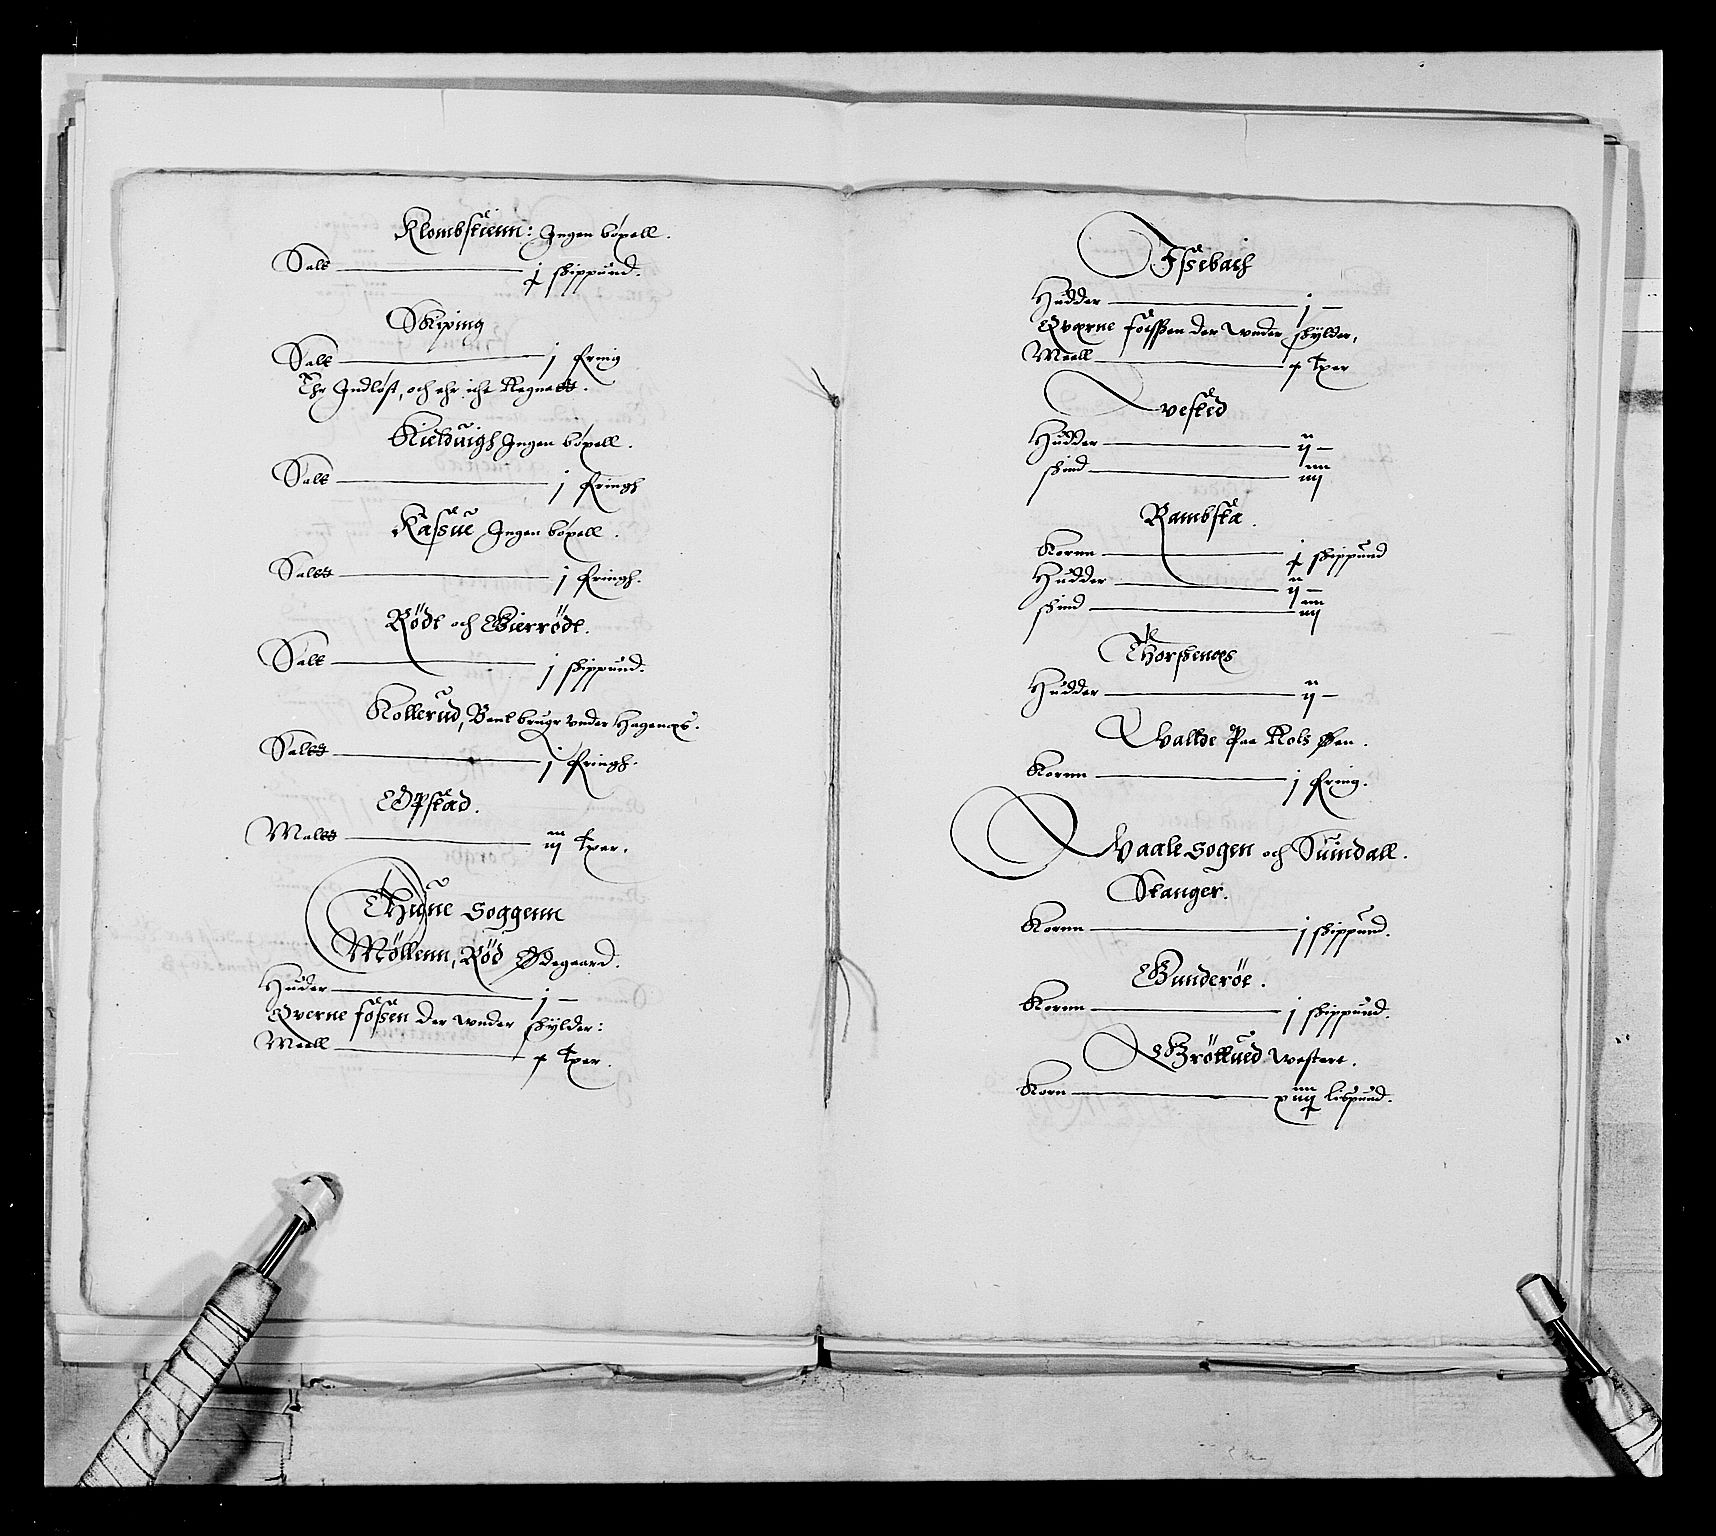 Klombsteenn: Ingen böxell.
Salt j skippund.
Skiping
Salt j fring
Ehr Indløst, och ehr iche Regnett.
Kielduigh Ingen böxell.
Salt j fringh
Kassue Ingen böxell.
Saltt j fringh.
Rödt och Bierrödt.
Salt j skippund.
Kollerud, Bent brugr vnder Hagenæs.
Saltt j fringh.
Opstad.
Maltt iij tper.
Thune soggenn
Möllenn, Röd Ødegaard.
Huder j
Qverne fossen der wnder skylder:
Meell tper.
Issebach
Hudder j
Qværne fossen der wnder skylder,
Meell tper
Vested
Hudder ij
skind iiij
Rambsta.
Kornn skippund
Hudder ij
skind iiij
Thorsenæs
Hudder ij
Vallde Paa Rols Øen.
Kornn j fring.
Vaale sogen och Suindall.
Stanger.
Kornn j skippund.
Gunderöe.
Kornn j skippund.
Gröttued westere.
Korn xiiij lispund.